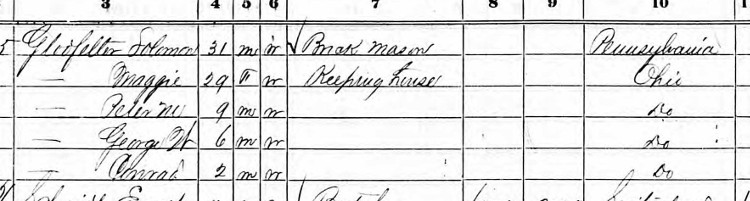 3 4 5 6 7 8 9 10
5 Glodfelter Solomon 31 m w Brick Mason Pennsylvania
— Maggie 29 F w Keeping house Ohio
— Peter M 9 m w Do
— George W 6 m w Do
— Conrad 2 m w Do